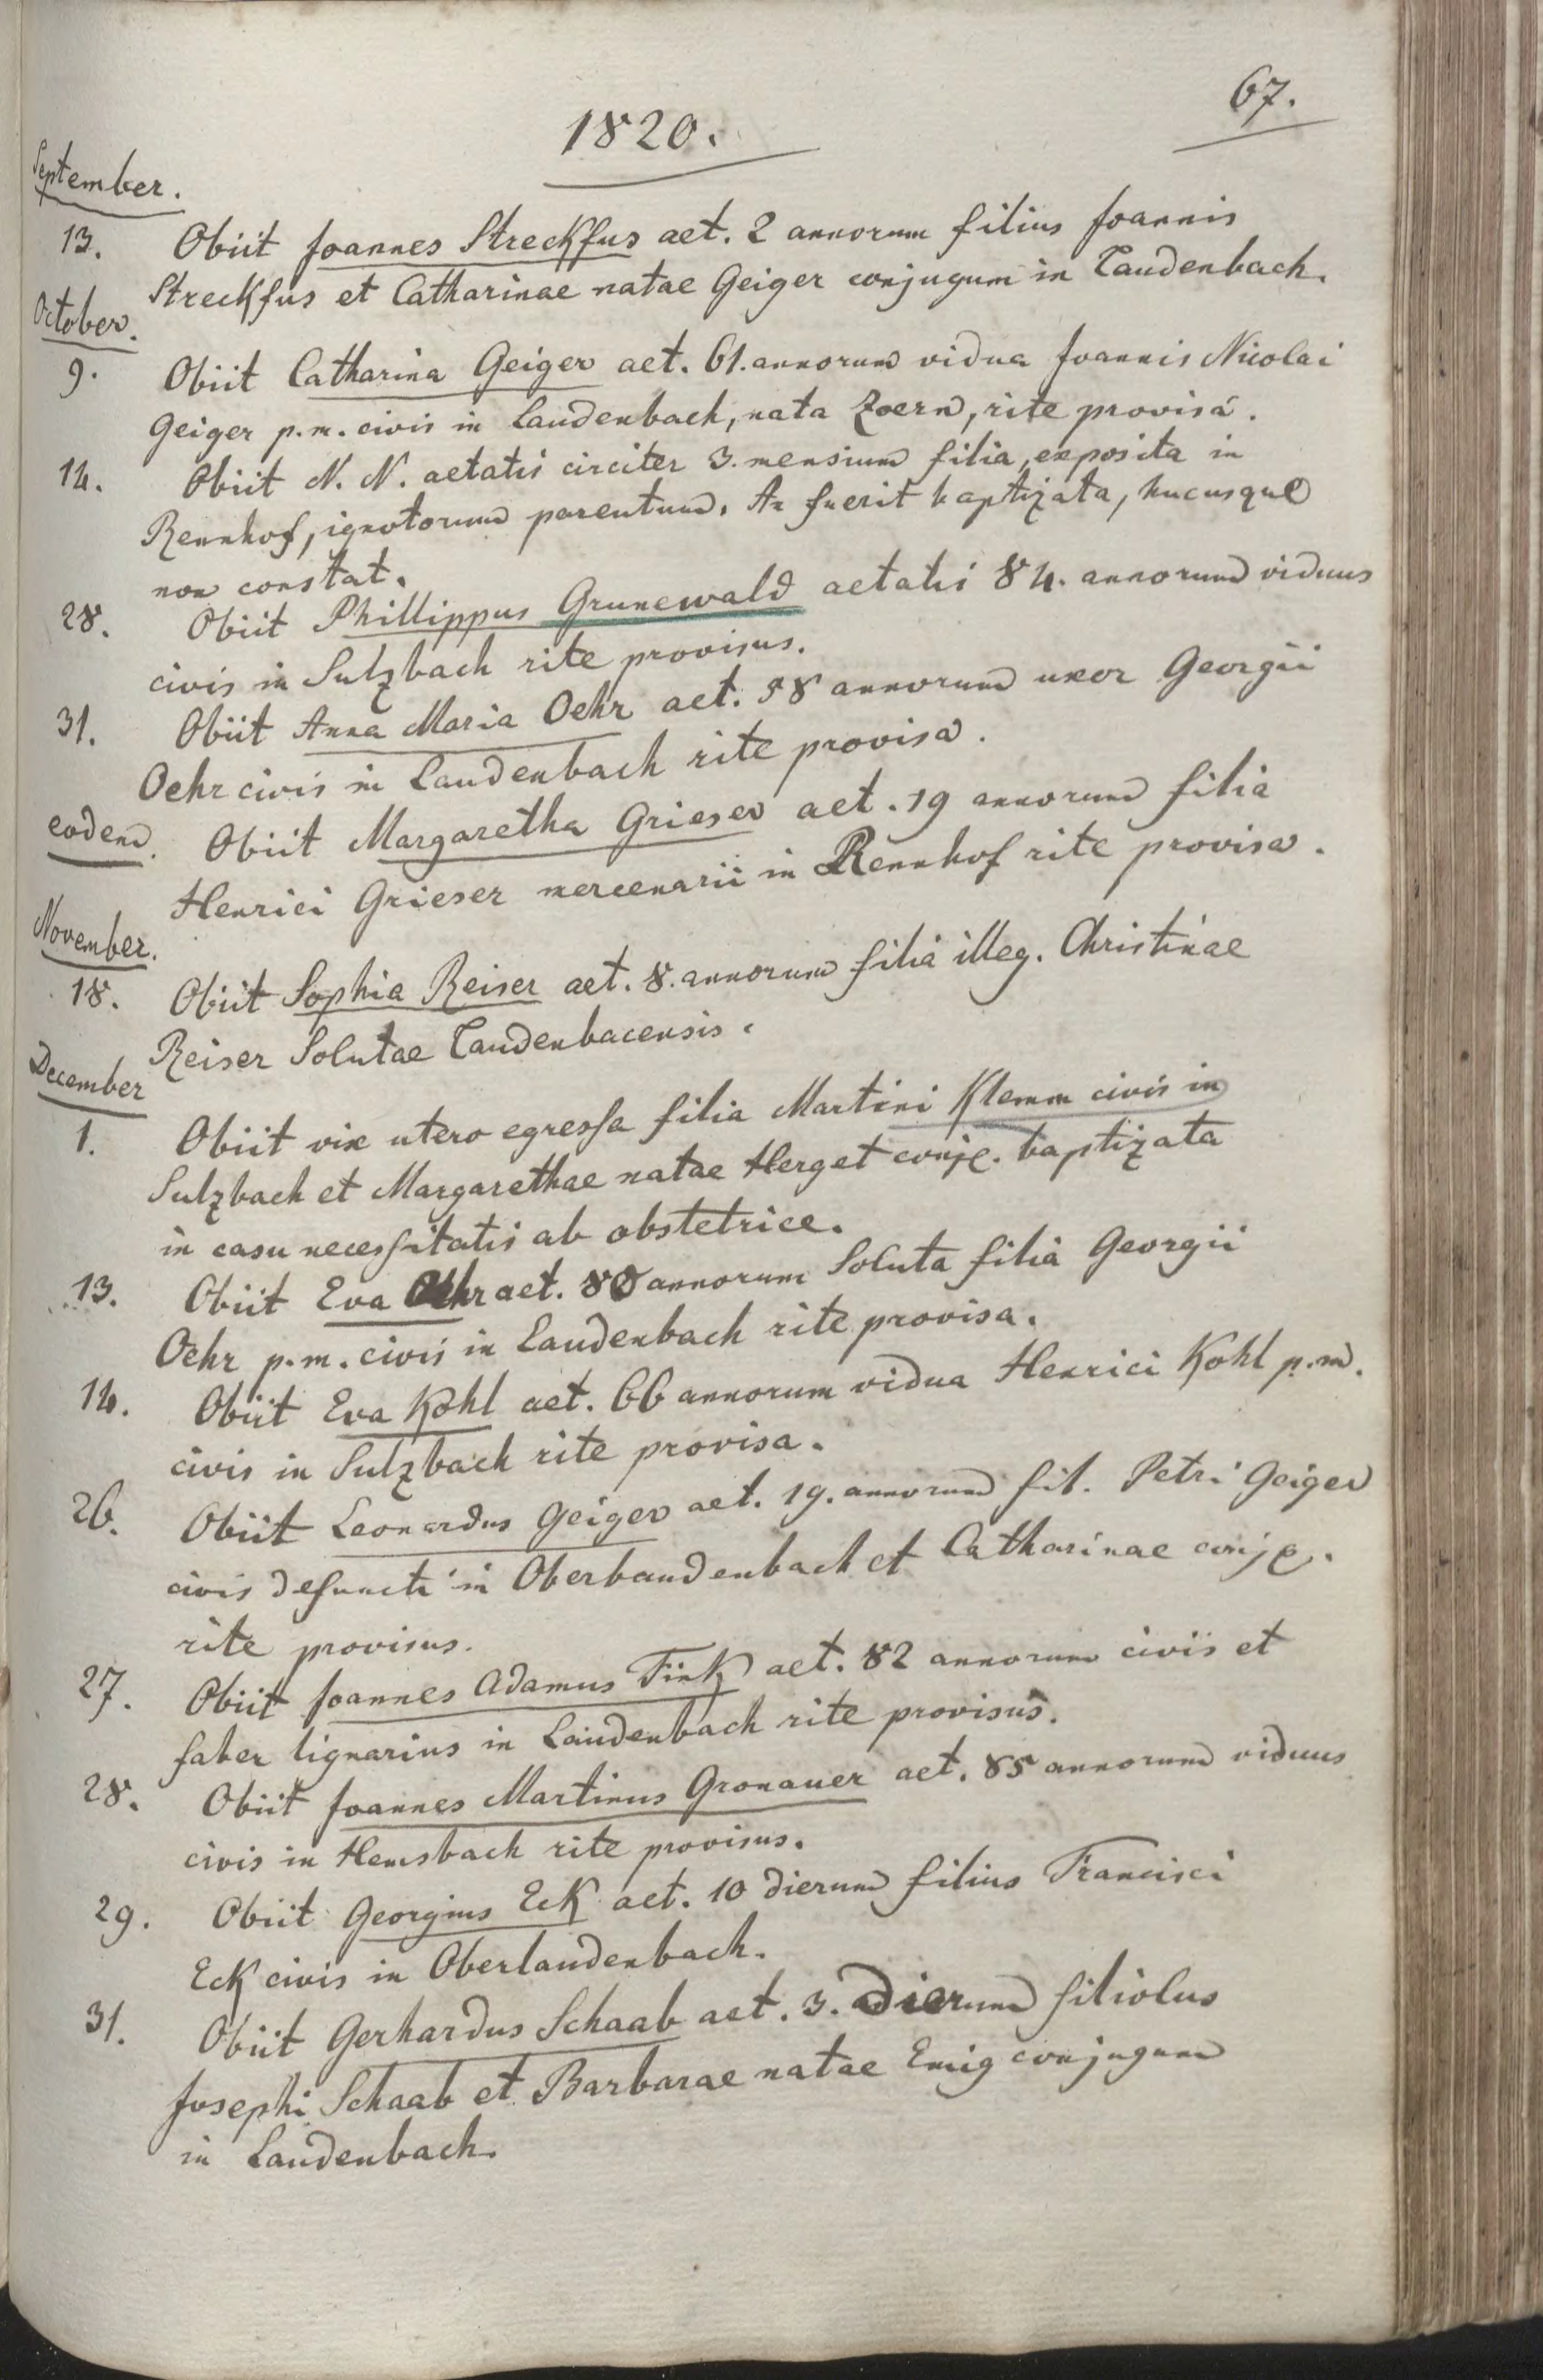 67.
1820.
September.
13. Obiit Joannes Streckfus aet. 2 annorum filius Joannis
Streckfus et Catharinae natae Geiger conjugum in Laudenbach.
October.
9. Obiit Catharina Geiger aet. 61. annorum vidua Joannis Nicolai
Geiger p.m. civis in Laudenbach, nata Zoern, rite provisa.
14. Obiit N. N. aetatis circiter 3. mensium filia, exposita in
Rennhof, ignotorum parentum. An fuerit baptizata, hucusque
non constat.
28. Obiit Phillippus Grunewald aetatis 84. annorum viduus
civis in Sulzbach rite provisus.
31. Obiit Anna Maria Oehr aet. 58 annorum uxor Georgii
Oehr civis in Laudenbach rite provisa.
eodem. Obiit Margaretha Grieser aet. 19 annorum filia
Henrici Grieser mercenarii in Rennhof rite provisa.
November.
18. Obiit Sophia Reiser aet. 8. annorum filia illeg. Christinae
Reiser Solutae Laudenbacensis.
December
1. Obiit vix utero egressa filia Martini Klemm civis in
Sulzbach et Margarethae natae Herget conjg. baptizata
in casu necessitatis ab obstetrice.
13. Obiit Eva Oehr aet. 80 annorum Soluta filia Georgii
Oehr p.m. civis in Laudenbach rite provisa.
14. Obiit Eva Kohl aet. 66 annorum vidua Henrici Kohl p.m.
civis in Sulzbach rite provisa.
26. Obiit Leonardus Geiger aet. 19. annorum fil. Petri Geiger
civis defuncti in Oberlaudenbach et Catharinae conjg.
rite provisus.
27. Obiit Joannes Adamus Fink aet. 82 annorum civis et
faber lignarius in Laudenbach rite provisus.
28. Obiit Joannes Martinus Gronauer aet. 85 annorum viduus
civis in Hemsbach rite provisus.
29. Obiit Georgius Eck aet. 10 dierum filius Francisci
Eck civis in Oberlaudenbach.
31. Obiit Gerhardus Schaab aet. 3. dierum filiolus
Josephi Schaab et Barbarae natae Emig conjugum
in Laudenbach.